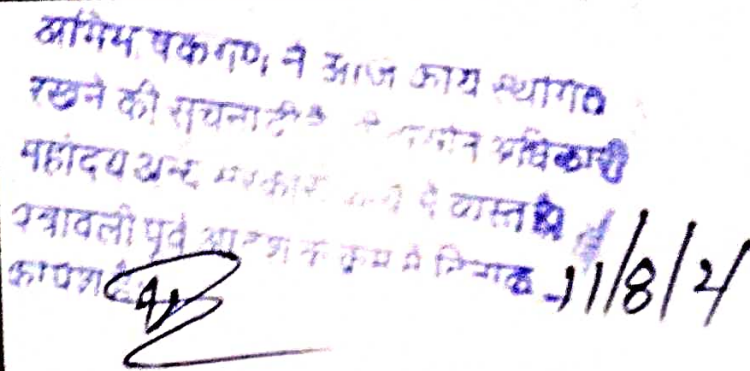 अभिभाषकगण ने आज कार्य स्थगित
रखने की सूचना दी है अधिकारी
महोदय अन्य सरकारी कार्य में व्यस्त है
पत्रावली पूर्व आदेश के क्रम में दिनांक 11/8/21
का पेश है